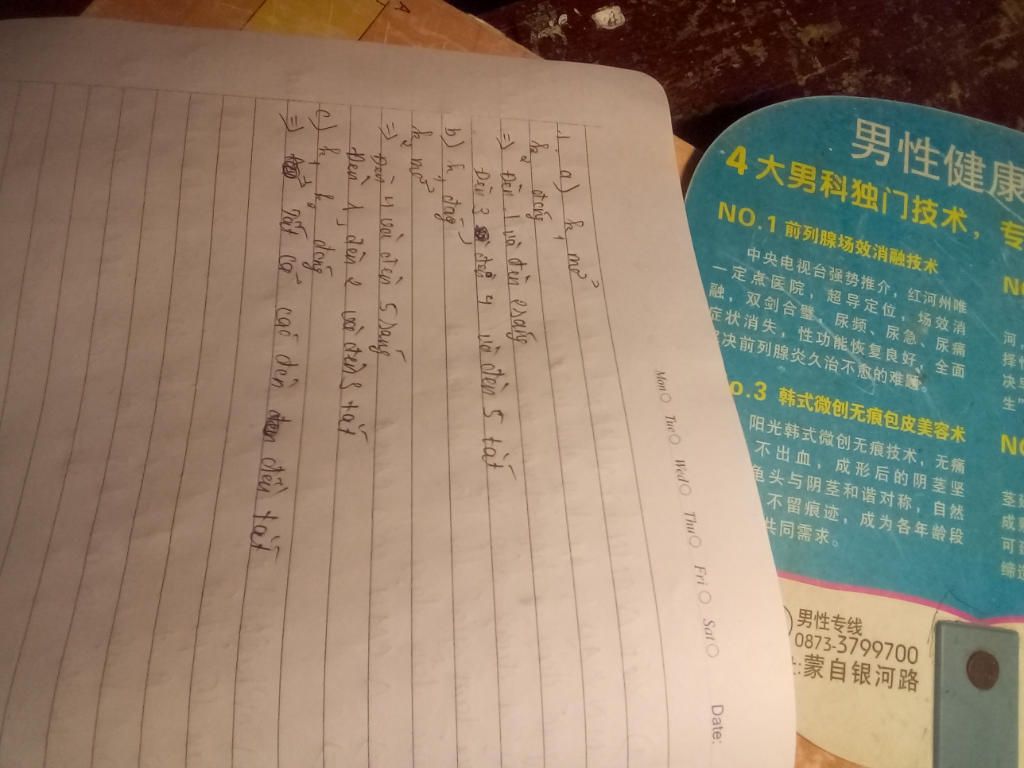 1. a) k₁ mở
k₂ đóng
=) Đèn 1 và đèn 2 sáng
Đèn 3 đèn 4 và đèn 5 tắt
b) k₁ đóng
k₂ mở
=) Đèn 4 và đèn 5 sáng
Đèn 1, đèn 2 và đèn 3 tắt
c) k₁, k₂ đóng
=) tất cả các đèn đều tắt
Mon Tue Wed Thu Fri Sat
Date:
男性健康
4大男科独门技术,专
NO.1 前列腺场效消融技术
中央电视台强势推介,红河州唯
一定点医院,超导定位,场效消
融,双剑合璧,尿频、尿急、尿痛
症状消失,性功能恢复良好,全面
决前列腺炎久治不愈的难题
o.3 韩式微创无痕包皮美容术
阳光韩式微创无痕技术,无痛
不出血,成形后的阴茎坚
龟头与阴茎和谐对称,自然
不留痕迹,成为各年龄段
共同需求。
男性专线
0873-3799700
蒙自银河路